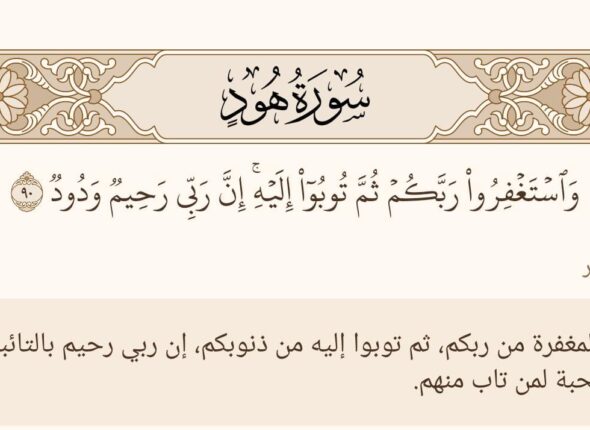 سُورَةُ هُودٍ
وَٱسۡتَغۡفِرُواْ رَبَّكُمۡ ثُمَّ تُوبُوٓاْ إِلَيۡهِۚ إِنَّ رَبِّي رَحِيمٞ وَدُودٞ ٩٠
من ربكم، ثم توبوا إليه من ذنوبكم، إن ربي رحيم
لمن تاب منهم.